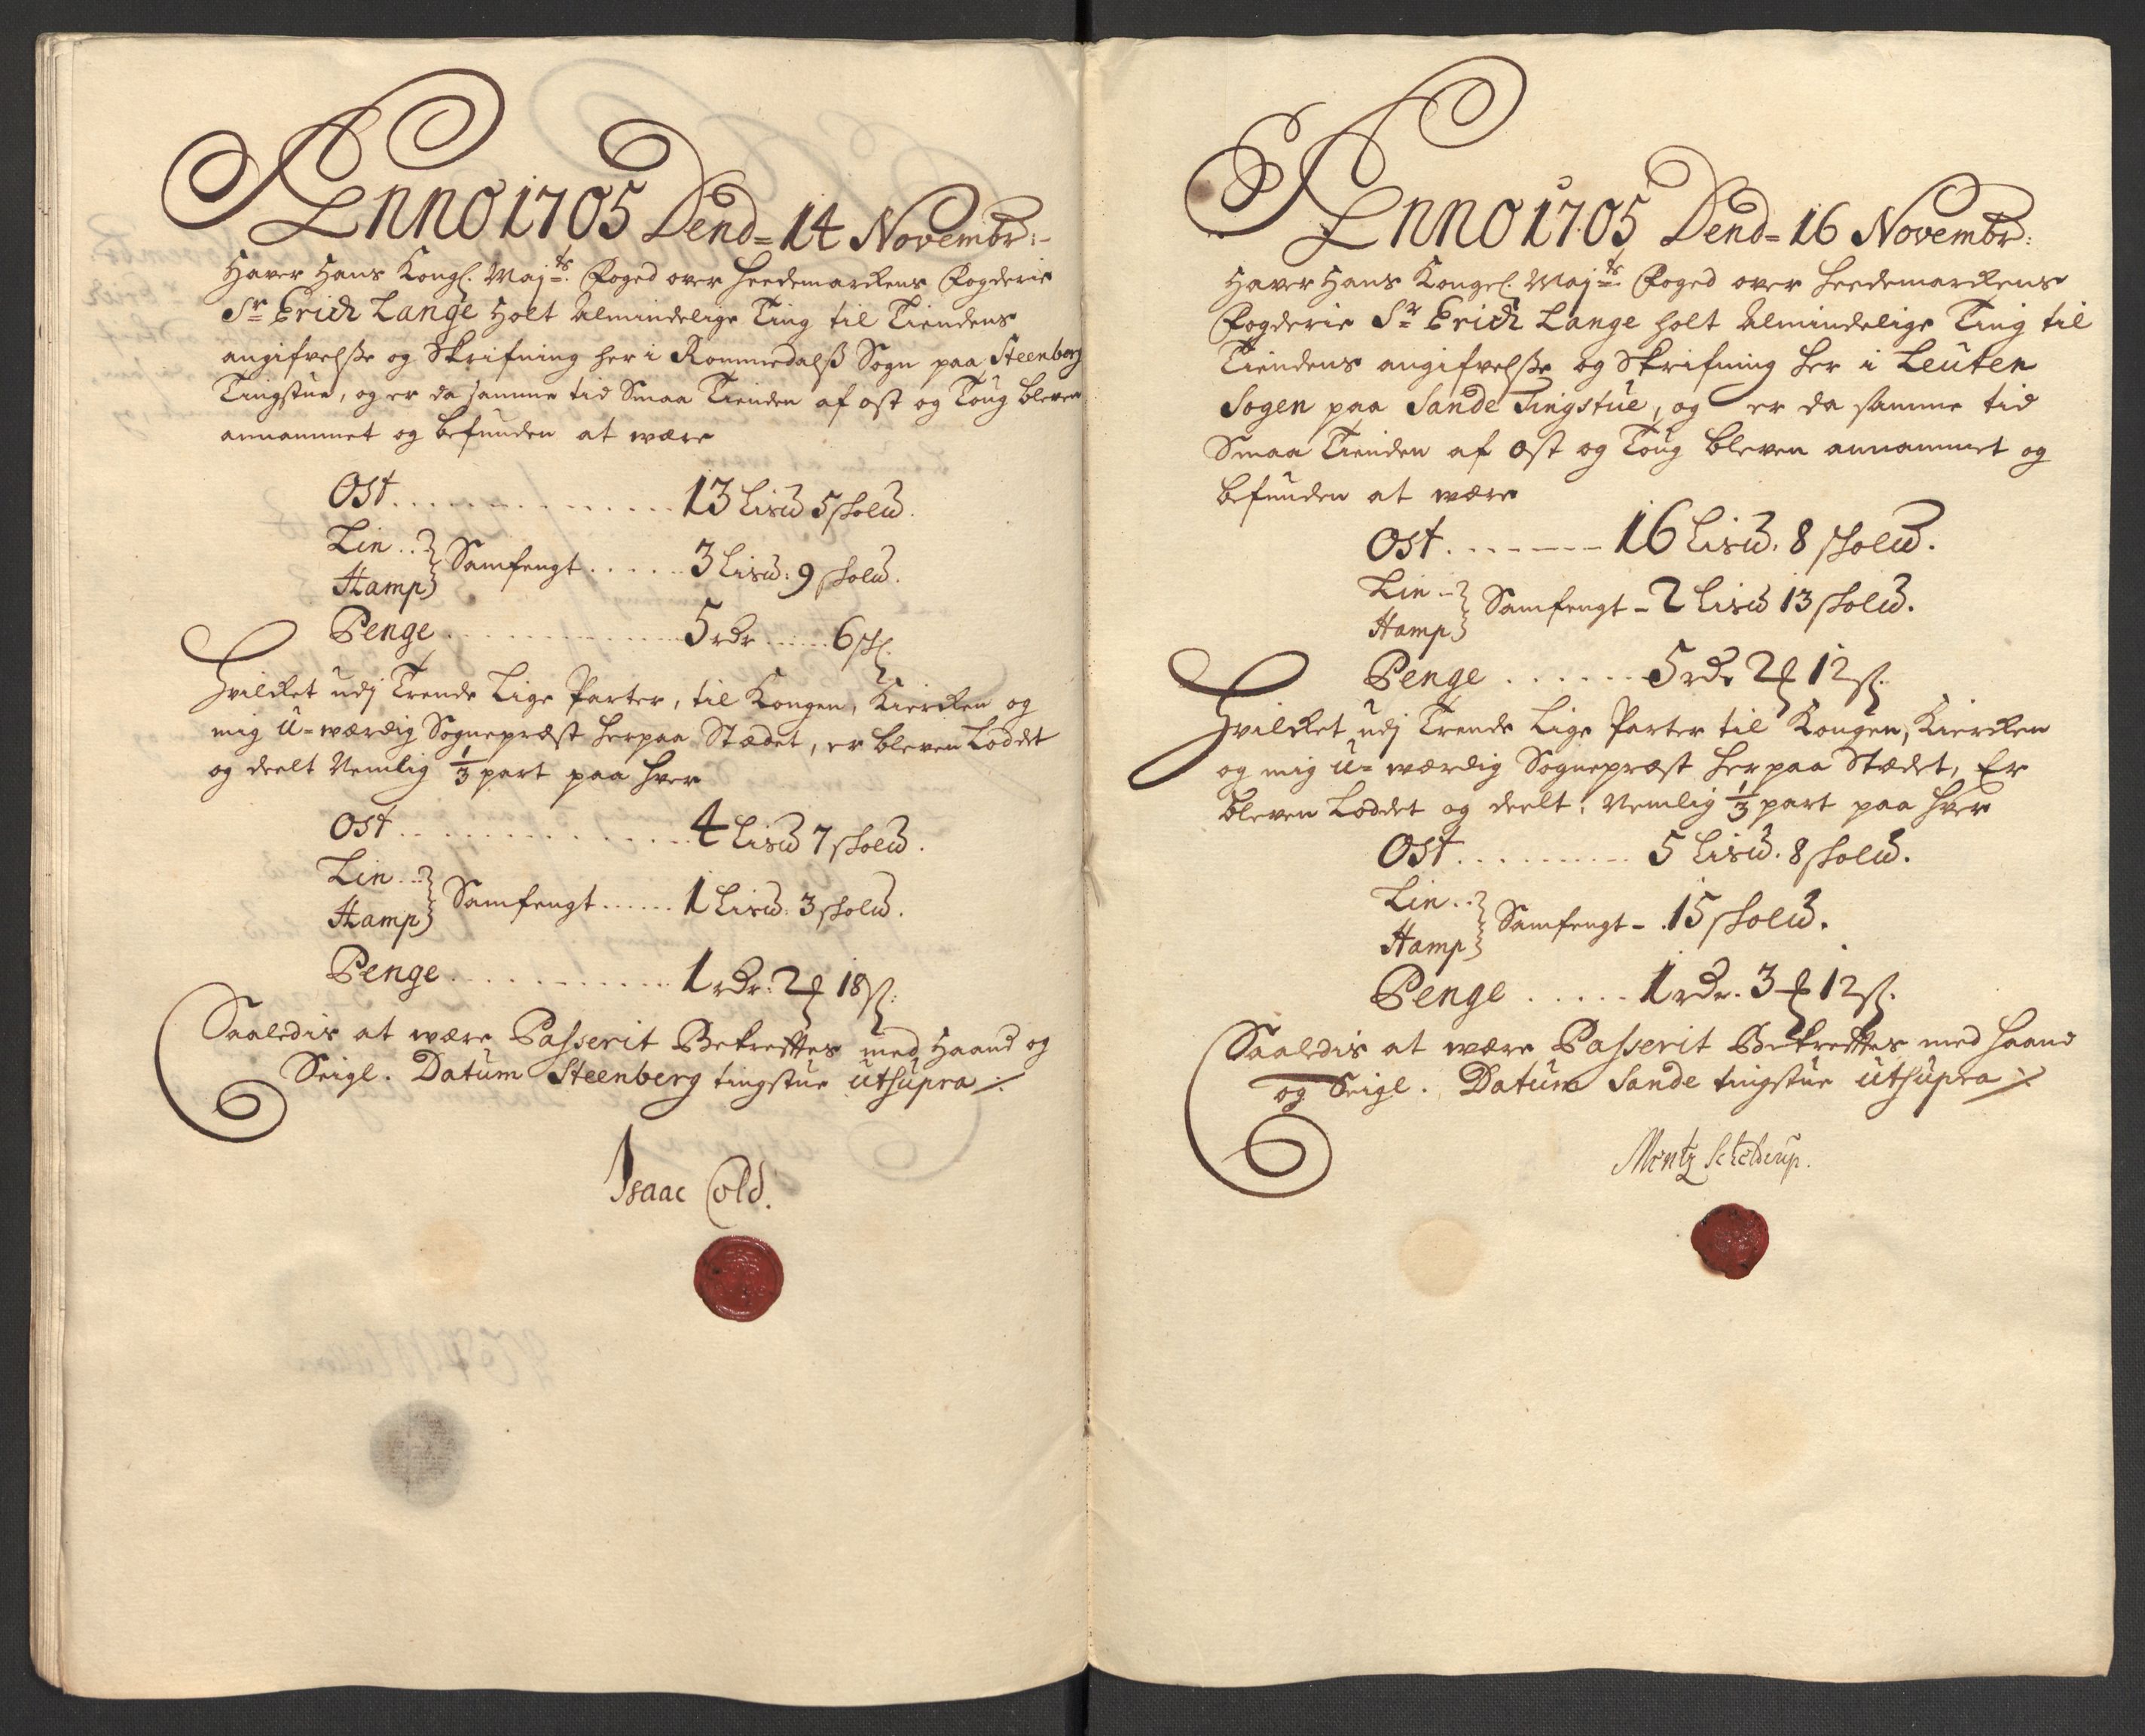 Anno 1705 Dend= 14 Novembr:-
Haver Hans Kongl. Maj:ts Foged over Heedemarckens Fogderie
Sr Erich Lange Holt Almindelige Ting til Tiendens
angifvelsse og Skrifning her i Rommedalss Sogn paa Steenberg
Tingstue, og er da samme tid Smaa Tienden af ost og Toug bleven
annammet og befunden at wære
Ost . . . . . . 13 Lis℔ 5 skol℔.
Lin . . } Samfengt . . . . . 3 Lis℔: 9 skol℔.
Hamp }
Penge . . . . . . 5 rdr . . . . 6 sk.
Hvilcket udj Trende Lige Parter, til Kongen, Kiercken og
mig U=wærdig Sognepræst herpaa Stædet, er bleven Loddet
og deelt Nemlig 1/3 part paa hver
Ost . . . . . . 4 Lis℔ 7 skol℔.
Lin . . } Samfengt . . . . . 1 Lis℔: 3 skol℔.
Hamp }
Penge . . . . . . 1 rdr: 2 ꝑ 18 sk:
Saaledis at wære Passerit Bekrefftes med Haand og
Seigl. Datum Steenberg tingstue utsupra ./.
Isaac Cold.
Anno 1705 Dend= 16 Novembr:
Haver Hans Kongel. Maj:ts Foged over Heedemarckens
Fogderie Sr Erich Lange holt Almindelige Ting til
Tiendens angifvelsse og Skrifning her i Leuten
Sogen paa Sande Tingstue, og er da samme tid
Smaa Tienden af Ost og Toug bleven annammet og
befunden at wære
Ost . . . . . . 16 Lis℔. 8 skol℔.
Lin . . } Samfengt - 2 Lis℔ 13 skol℔.
Hamp }
Penge . . . . . . 5 rdr 2 ꝑ 12 sk.
Hvilcket udj Trende Lige Parter til Kongen, Kiercken
og mig U= wærdig Sognepræst herpaa Stædet, Er
bleven Loddet og deelt, Nemlig 1/3 part paa hver
Ost . . . . . . 5 Lis℔. 8 skol℔.
Lin . . } Samfengt - . 15 skol℔.
Hamp }
Penge . . . . . 1 rdr. 3 ꝑ 12 sk.
Saaledis at wære Passerit Bekrefftes med Haand
og Seigl. Datum Sande tingstue utsupra ./.
Mentz Schelderup.